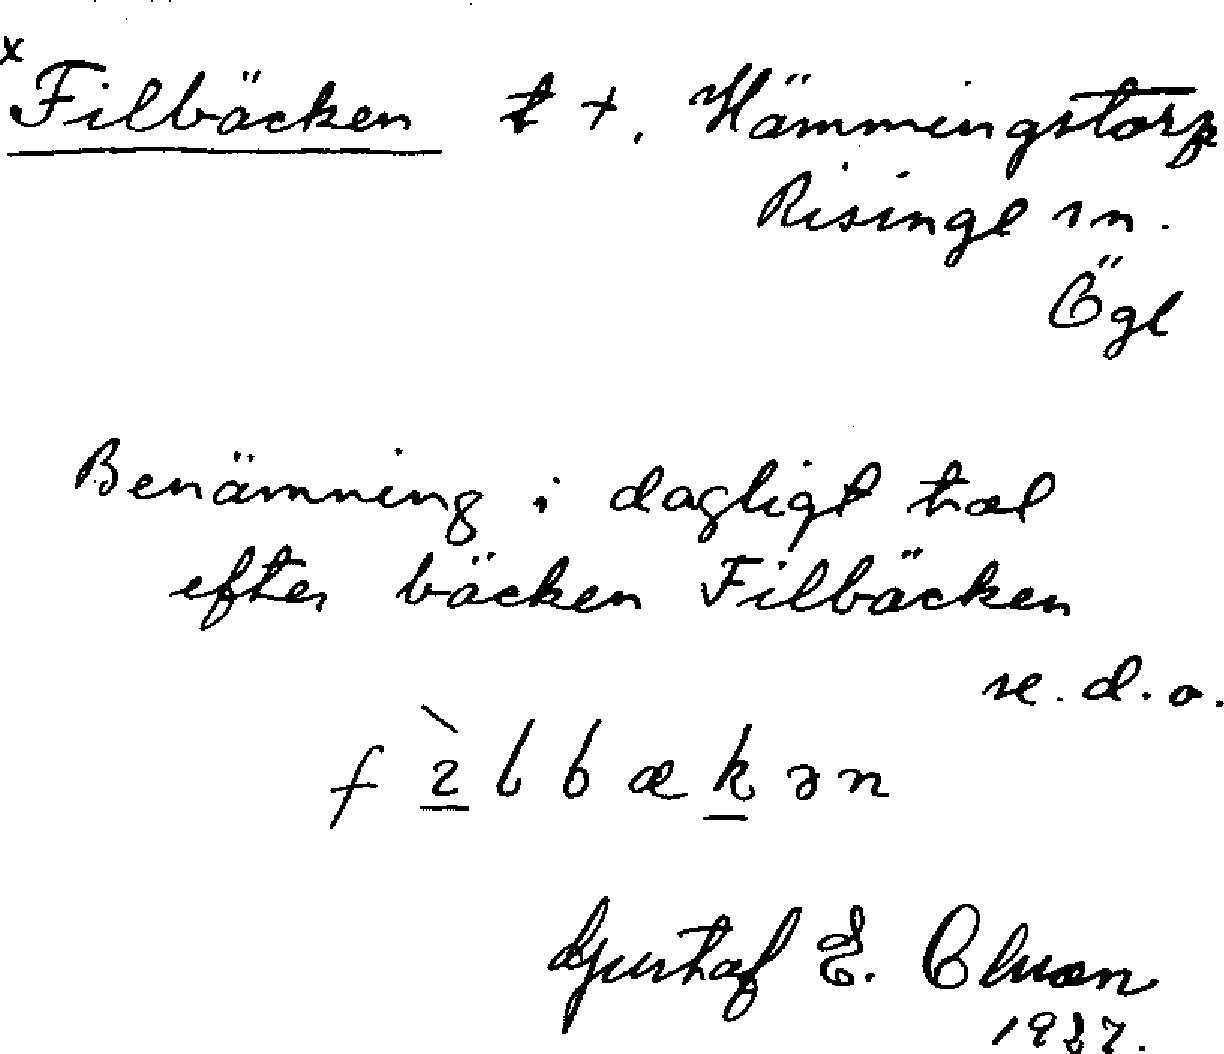 x Filbäcken t +. Hämmingstorp
Risinge sn.
Ögl
Benämning i dagligt tal
efter bäcken Filbäcken
se. d. o.
Gustaf E.
1937.